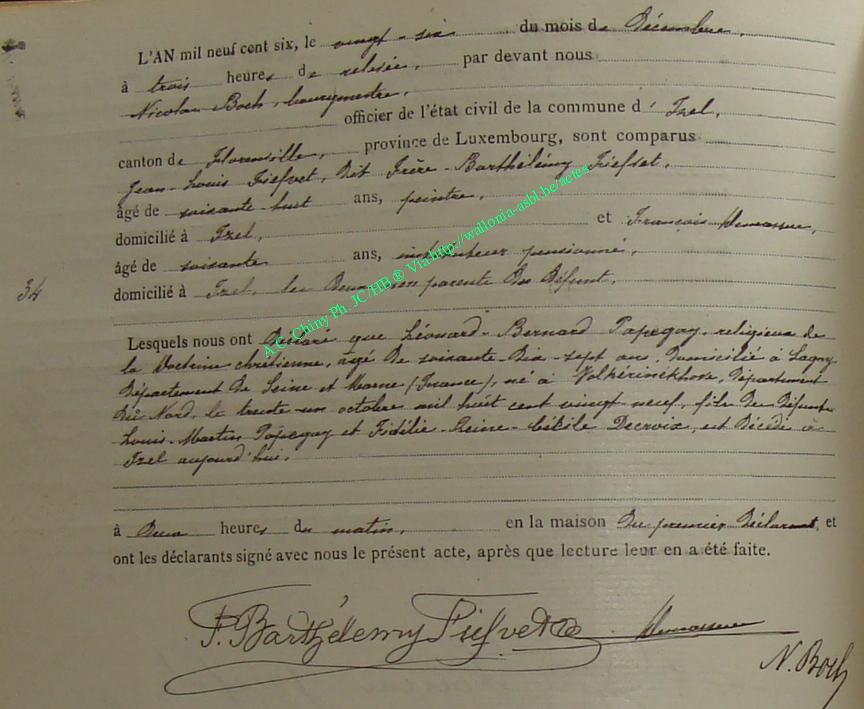 L'AN mil neuf cent six, le vingt-six du mois de Décembre,
à trois heures de relevée, par devant nous
Nicolas Boch, bourgmestre,
officier de l'état civil de la commune d'Izel,
canton de Florenville, province de Luxembourg, sont comparus
Jean-Louis Fiefvet, dit Frère-Barthélémy Fiefvet,
âgé de soixante-huit ans, peintre,
domicilié à Izel, et François
âgé de soixante ans, instituteur pensionné,
34
domicilié à Izel, les Deux non parents du Défunt,
Lesquels nous ont Déclaré que Léonard-Bernard Papegay, religieux de
la Doctrine chrétienne, âgé de soixante-Dix-sept ans, Domicilié à Lagny
Département de Seine et Marne (France), né à Volkérinckhove, Département
Du Nord, le trente-un octobre mil huit cent vingt-neuf, fils de Défunts
Louis-Martin Papegay et Fidélie-Reine-Cécile Decroix, est Décédé à
Izel aujourd'hui,
à Deux heures du matin, en la maison Du premier Déclarant, et
ont les déclarants signé avec nous le présent acte, après que lecture leur en a été faite.
F. Barthélemy Fiefvet
N. Boch
A.G. Chiny Ph. JC/HB ® Via http://wallonia-asbl.be/actes